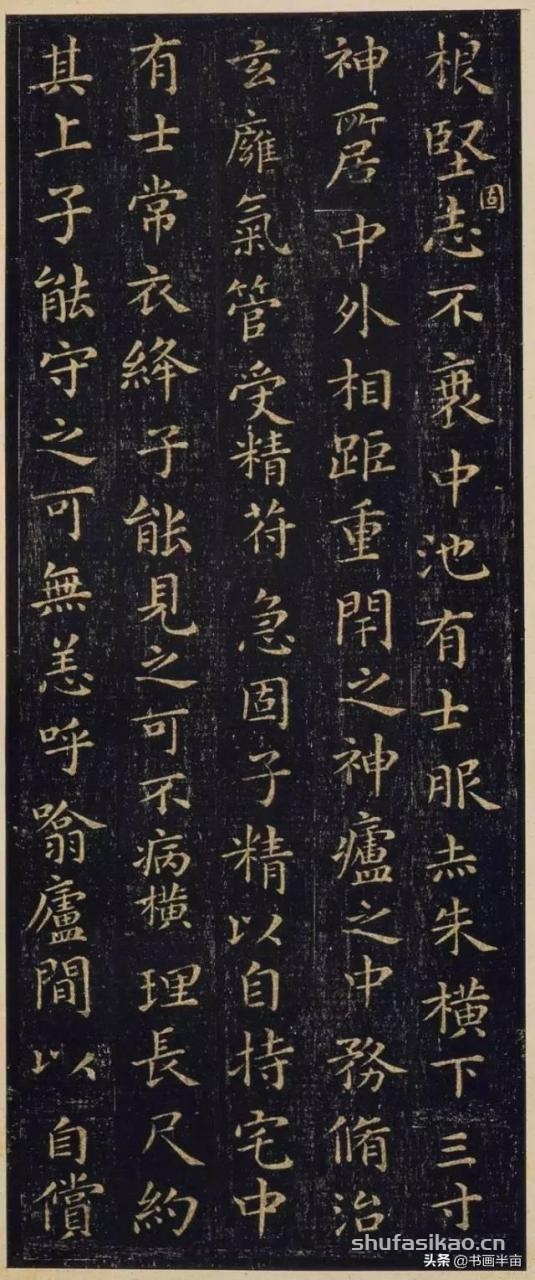 根堅固志不衰中池有士服赤朱横下三寸
神所居中外相距重閇之神廬之中務脩治
玄廱氣管受精苻急固子精以自持宅中
有士常衣絳子能見之可不病横理長尺約
其上子能守之可無恙呼噏廬間以自償
shufasikao.cn
头条 @书画半亩